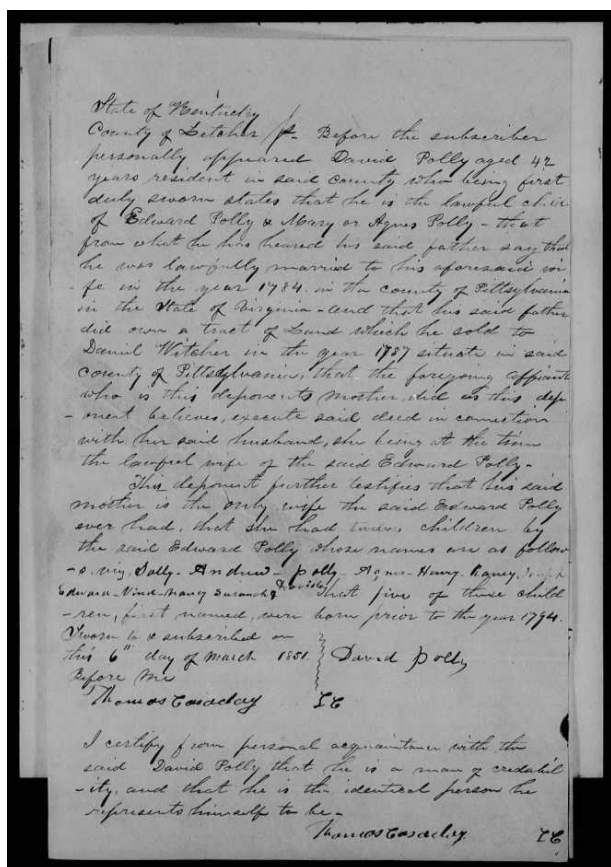 State of Kentucky
County of Letcher Before the subscriber
personally appeared David Polly aged 42
years resident in said county who being first
duly sworn states that he is the lawful child
of Edward Polly & Mary or Agnes Polly - that
from what he has heared his said father say that
he was lawfully married to his aforesaid wi-
-fe in the year 1784. in the county of Pittsylvania
in the State of Virginia - and that his said father
did own a tract of Land which he sold to
Daniel Witcher in the year 1787 situate in said
county of Pittsylvania, that the foregoing affiant
who is this deponents mother, did as this dep
-onent believes, execute said deed in connection
with her said husband, she being at the time
the lawful wife of the said Edward Polly -
This deponent further testifies that his said
mother is the only wife the said Edward Polly
ever had, that she had children by
the said Edward Polly whose names are as follow
-s. viz, Sally - Andrew - Polly - Agnes - Henry,
Edward - Nancy & David. That five of these child
-ren, first named, were born prior to the year 1794.
Sworn to & subscribed on
this 6th day of March 1851. David Polly
Before Me
Thomas Casaday
I certify from personal acquaintance with the
said David Polly that he is a man of credabil
-ity, and that he is the identical person he
represents himself to be -
Thomas Casaday